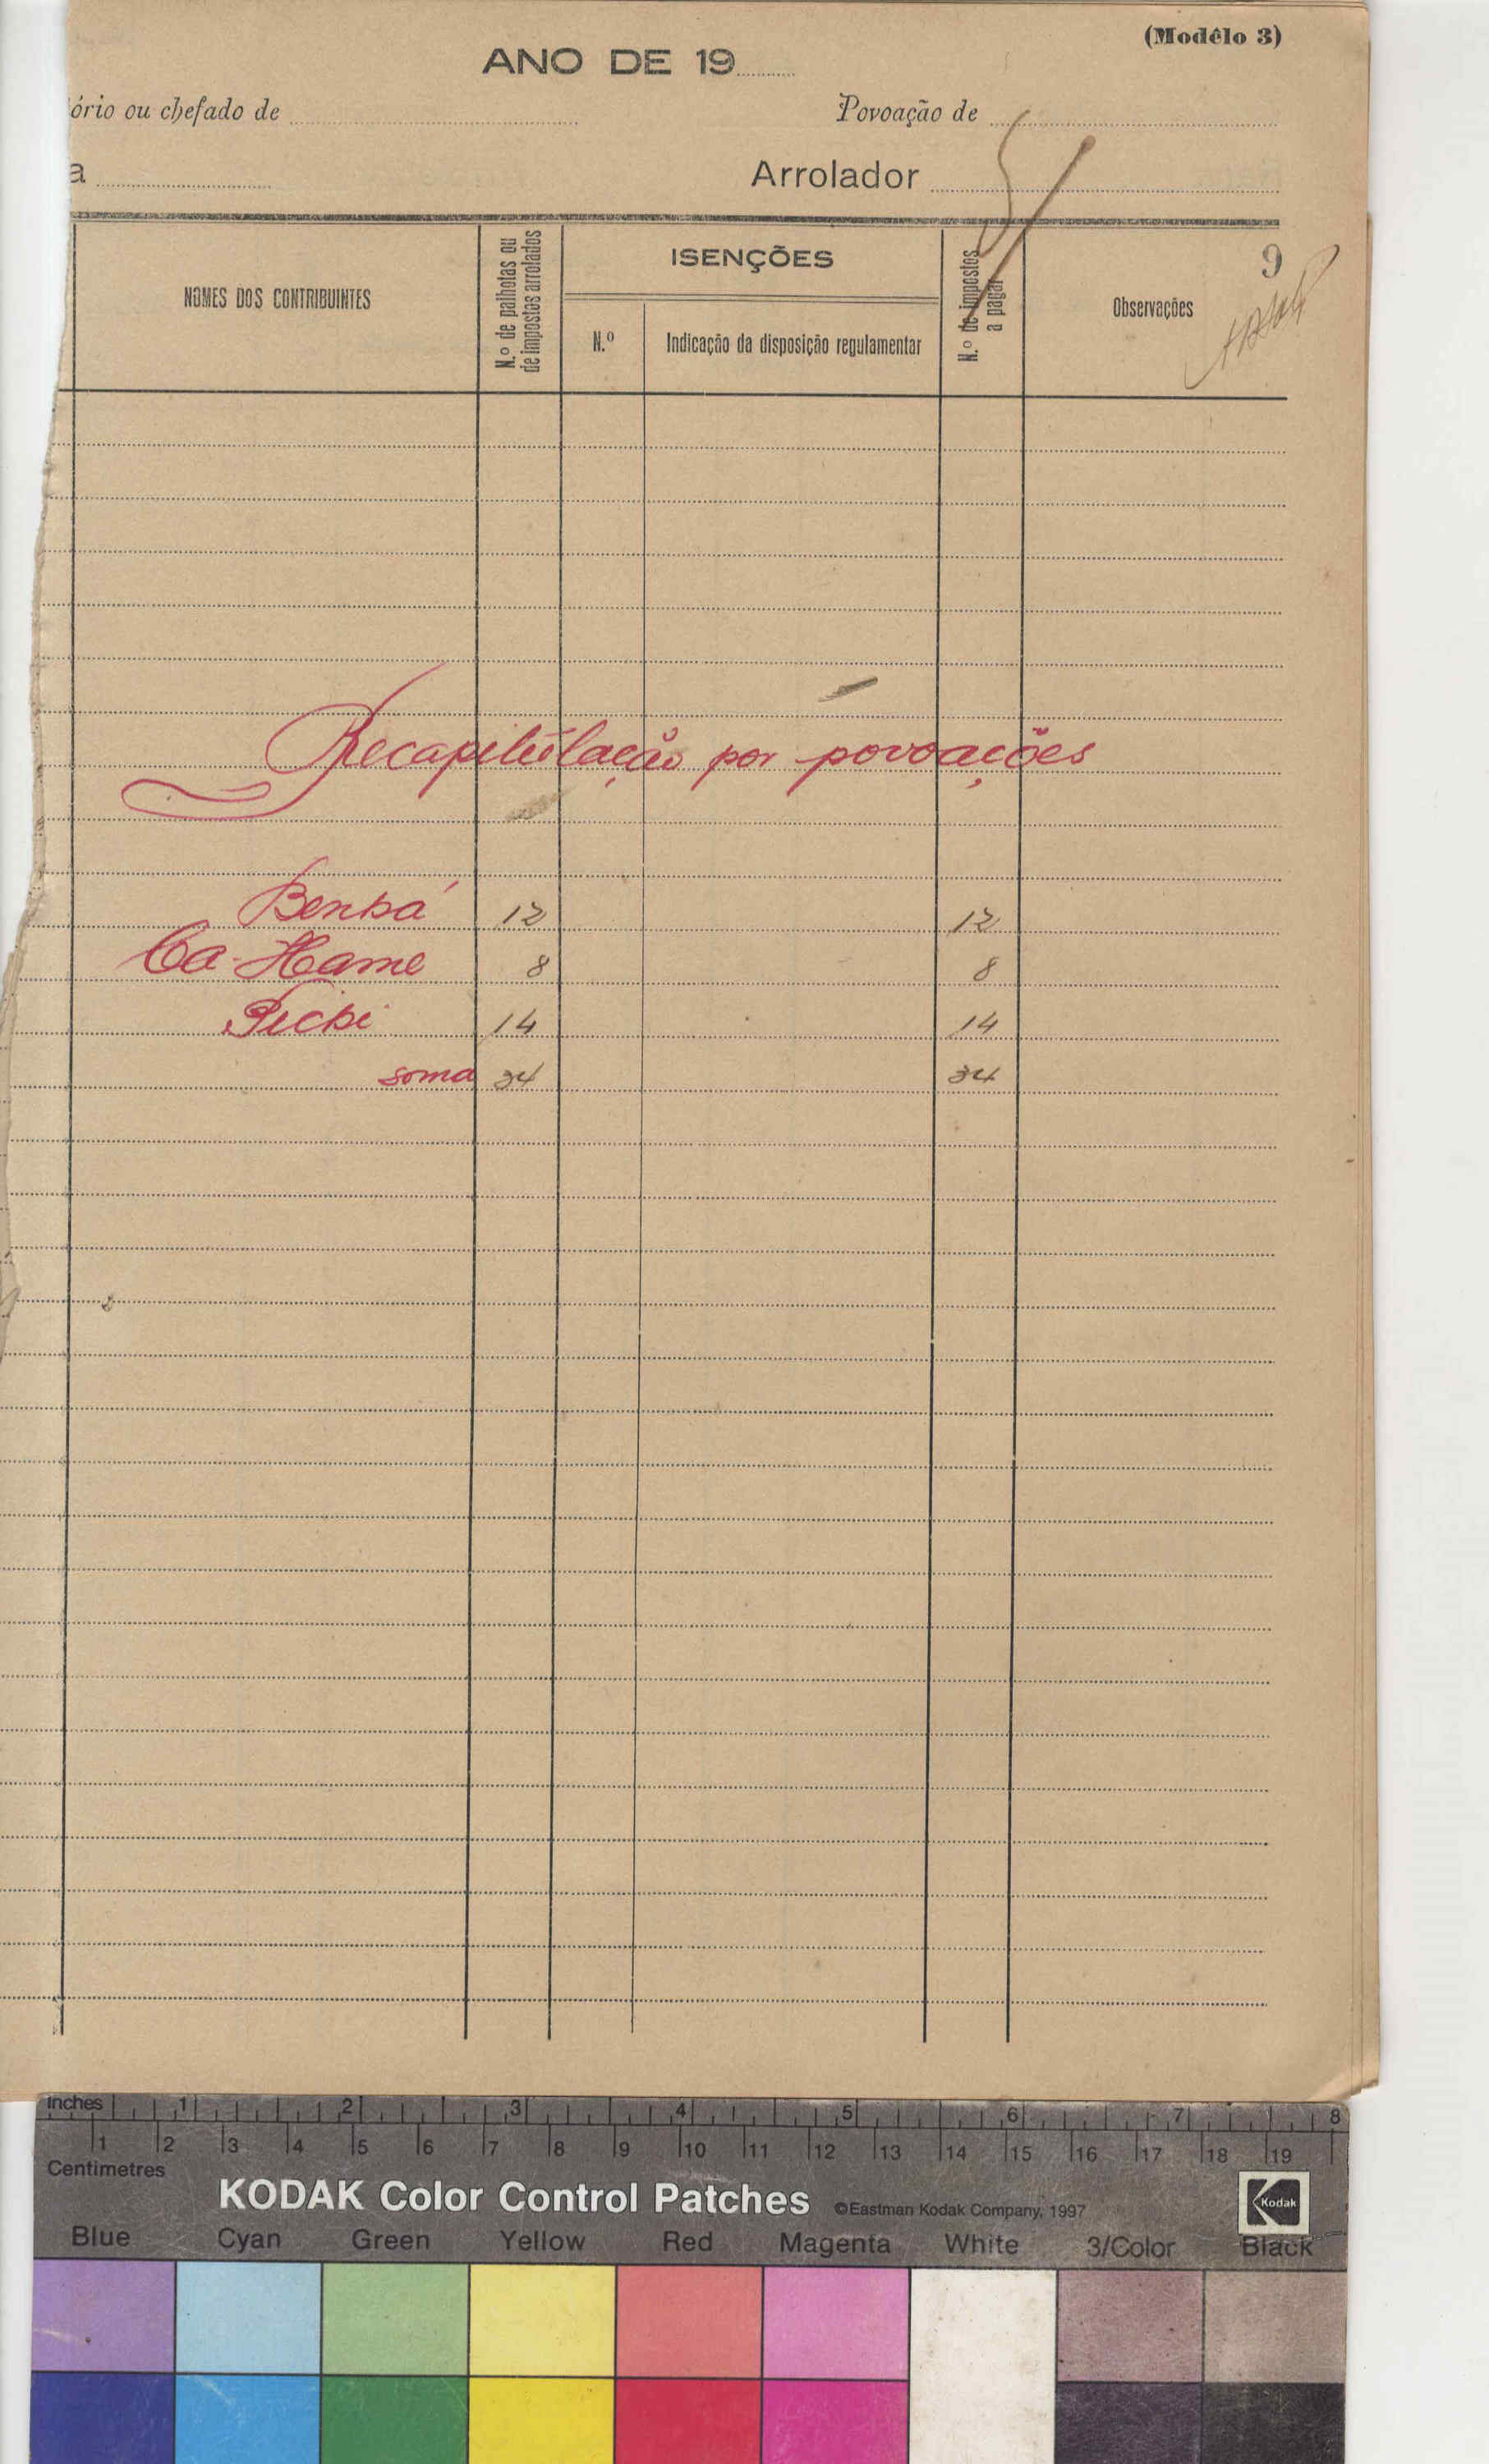 (Modêlo 3)
ANO DE 19
ório ou chefado de
Povoação de
a
Arrolador
NOMES DOS CONTRIBUINTES
N.º de palhotas ou
de impostos arrolados
ISENÇÕES
N.º
Indicação da disposição regulamentar
N.º de impostos
a pagar
Observações
9
Recapitulação por povoações
12 12
Ca-Hame 8 8
14 14
soma 34 34
inches 1 2 3 4 5 6 7 8
1 2 3 4 5 6 7 8 9 10 11 12 13 14 15 16 17 18 19
Centimetres
KODAK Color Control Patches ©Eastman Kodak Company, 1997 Kodak
Blue Cyan Green Yellow Red Magenta White 3/Color Black